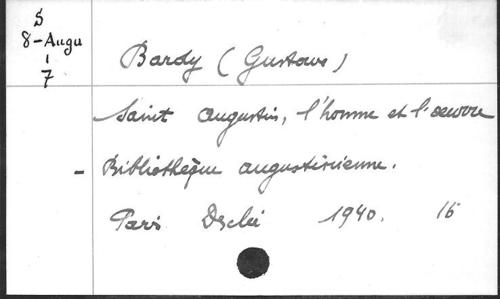 S
8-Augu
1
7
Bardy (Gustave)
Saint Augustin, l'homme et l'oeuvre
- Bibliothèque augustinienne.
Paris Desclée 1940. 16